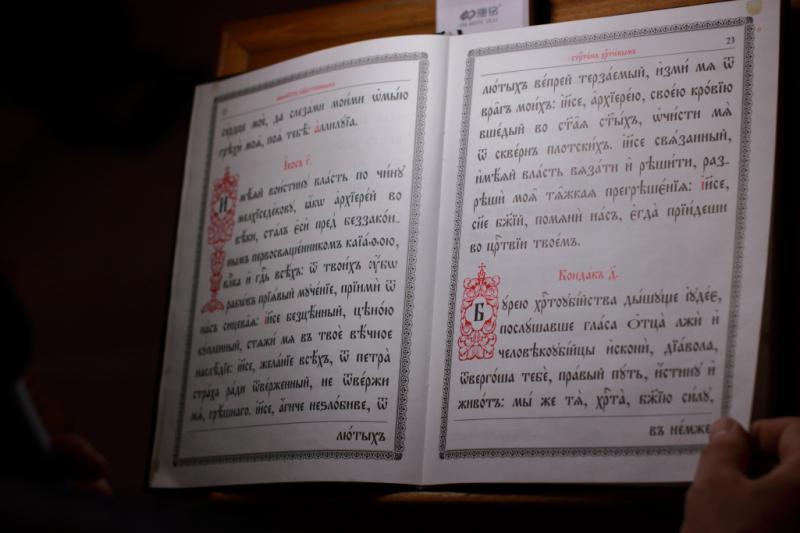 康铭
сердце моѐ, да слеза́ми мои́ми ѿмы́ю
грѣхѝ моѧ̑, поѧ̀ тебѣ̀: а҆ллилꙋ́їа.
І҆́косъ є҃.
И҆мѣ́ѧй вои́стинꙋ вла́сть по чи́нꙋ
мелхїседе́ковꙋ, ꙗ҆́кѡ а҆рхїере́й во
вѣ́ки, ста́лъ є҆сѝ пред̾ беззако́н-
нымъ первосвѧще́нникомъ каїа́фою,
влⷣка и҆ гдⷭ҇ь всѣ́хъ: ѿ твои́хъ ᲂу҆́бѡ
рабѡ́въ прїѧ́вый мꙋче́нїе, прїимѝ ѿ
на́съ сицева̑ѧ: і҆и҃се безцѣ́нный, цѣно́ю
кꙋ́пленный, стѧжи́ мѧ въ твоѐ вѣ́чное
наслѣ́дїе: і҆и҃се, жела́нїе всѣ́хъ, ѿ петра̀
стра́ха ра́ди ѿве́рженный, не ѿве́ржи
мѧ̀, грѣ́шнаго. і҆и҃се, а҆́гнче неѕло́биве, ѿ
лю́тыхъ
23
лю́тыхъ ве́прей терза́емый, и҆змѝ мѧ ѿ
вра̑гъ мои́хъ: і҆и҃се, а҆рхїере́ю, свое́ю кро́вїю
вше́дый во ст҃а̑ѧ ст҃ы́хъ, ѡ҆чи́сти мѧ̀
ѿ скве́рнъ плотски́хъ. і҆и҃се свѧ́занный,
и҆мѣ́ѧй вла́сть вѧза́ти и҆ рѣши́ти, раз-
рѣшѝ моѧ̑ тѧ̑жкаѧ прегрѣшє́нїѧ: і҆и҃се,
сн҃е бж҃їй, помѧнѝ на́съ, є҆гда̀ прїи́деши
во црⷭ҇твїи твое́мъ.
Конда́къ д҃.
Бꙋ́рею хрⷭ҇тоꙋбі́йства ды́шꙋще і҆ꙋде́є,
послꙋ́шавше гла́са ѻ҆тца̀ лжѝ и҆
человѣкоꙋбі́йцы и҆сконѝ, дїа́вола,
ѿверго́ша тебѐ, пра́вый пꙋ́ть, и҆́стинꙋ и҆
живо́тъ: мы́ же тѧ̀, хрⷭ҇та̀, бж҃їю си́лꙋ,
въ не́мже